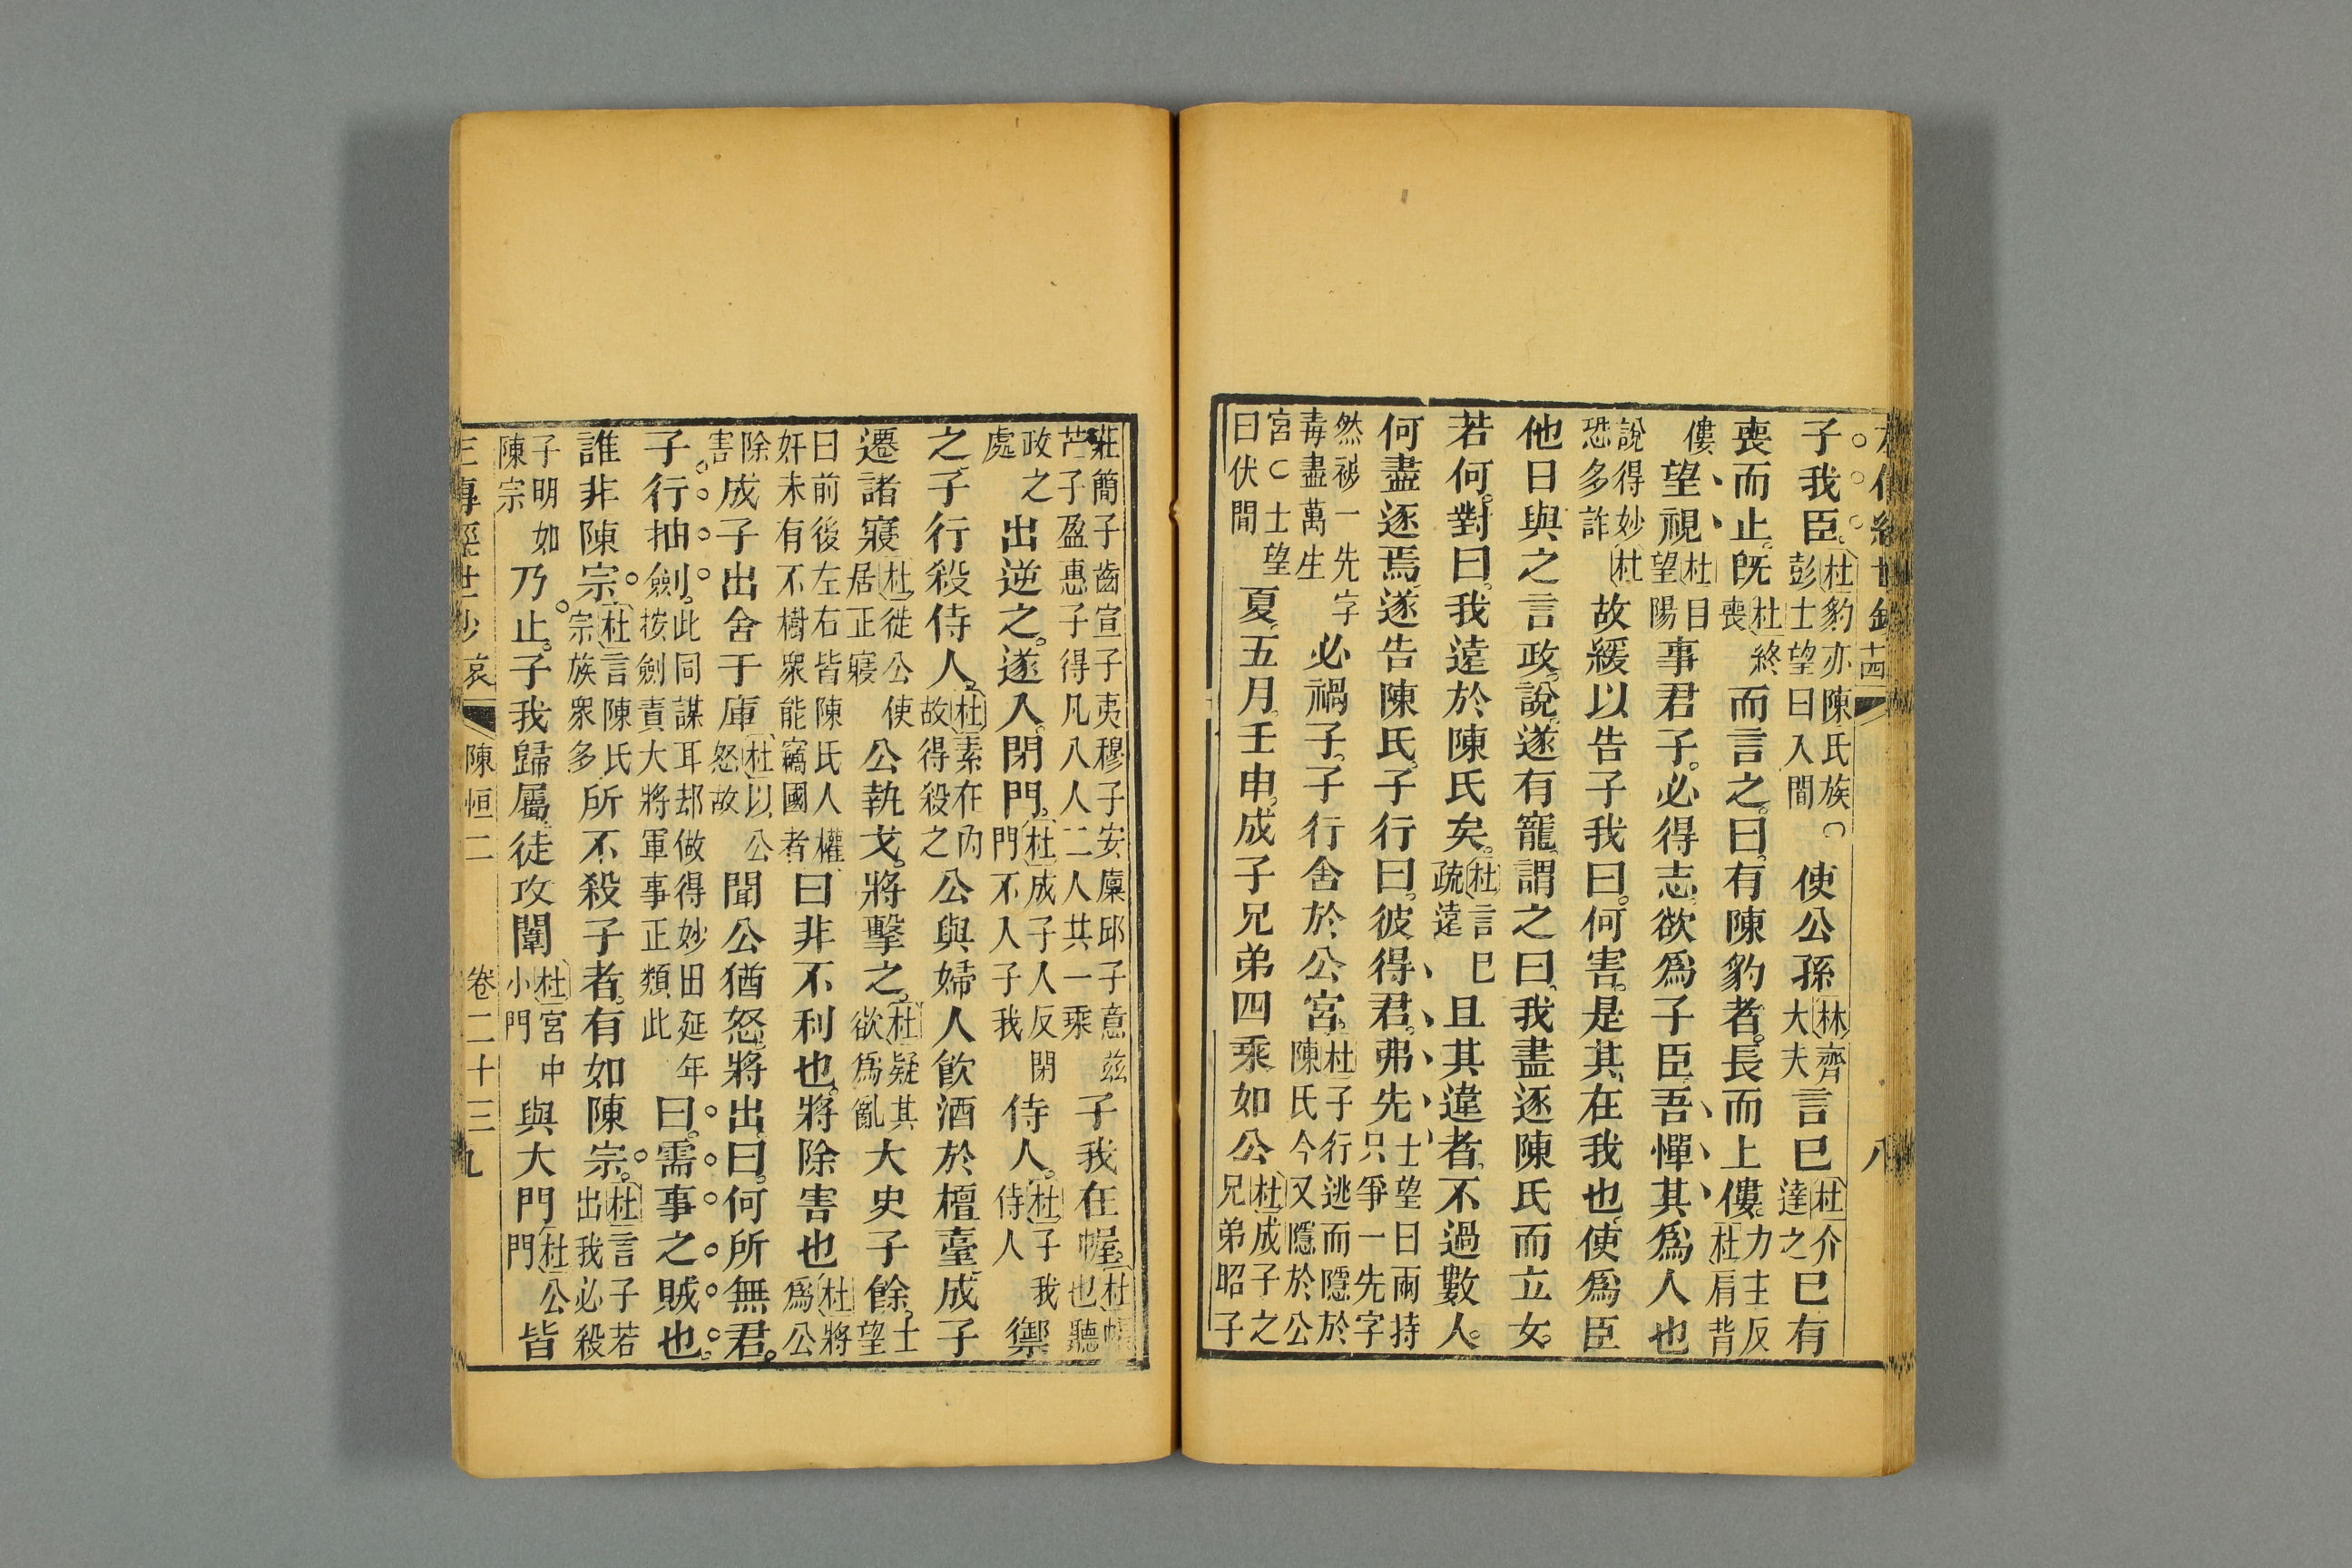 子我臣杜豹亦陳氏族○彭士望曰入間使公孫林齊大夫言已杜介達之已有
喪而止既杜終喪而言之曰有陳豹者長而上僂力主反杜肩背
僂望視杜目望陽事君子必得志欲爲子臣吾憚其爲人也
說得妙恐多詐杜故緩以告子我曰何害是其在我也使爲臣
他日與之言政說遂有寵謂之曰我盡逐陳氏而立女
若何對曰我遠於陳氏矣杜言已疏遠且其違者不過數人
何盡逐焉遂告陳氏子行曰彼得君弗先士望曰兩持只爭一先字
然禍一先字毒盡萬生必禍子子行舍於公宮杜子行逃而隱於陳氏今又隱於公
宮○士望曰伏間夏五月壬申成子兄弟四乘如公杜成子之兄弟昭子
八
莊簡子齒宣子夷穆子安廩邱子意茲芒子盈惠子得凡八人二人共一乘子我在幄杜帳也聽
政之處出逆之遂入閉門杜成子人反閉門不入子我侍人杜子我侍人禦
之子行殺侍人杜素在內故得殺之公與婦人飲酒於檀臺成子
遷諸寢杜徙公使居正寢公執戈將擊之杜疑其欲爲亂大史子餘士望
曰前後左右皆陳氏人權奸未有不樹眾能竊國者曰非不利也將除害也杜將爲公
除害成子出舍于庫杜以公怒故聞公猶怒將出曰何所無君
子行抽劍此同謀耳却做得妙田延年按劍責大將軍事正類此曰需事之賊也
誰非陳宗杜言陳氏宗族眾多所不殺子者有如陳宗杜言子若出我必殺
子明如陳宗乃止子我歸屬徒攻闈杜宮中小門與大門杜公門皆
三專經世鈔 哀 陳恒二 卷二十三 九